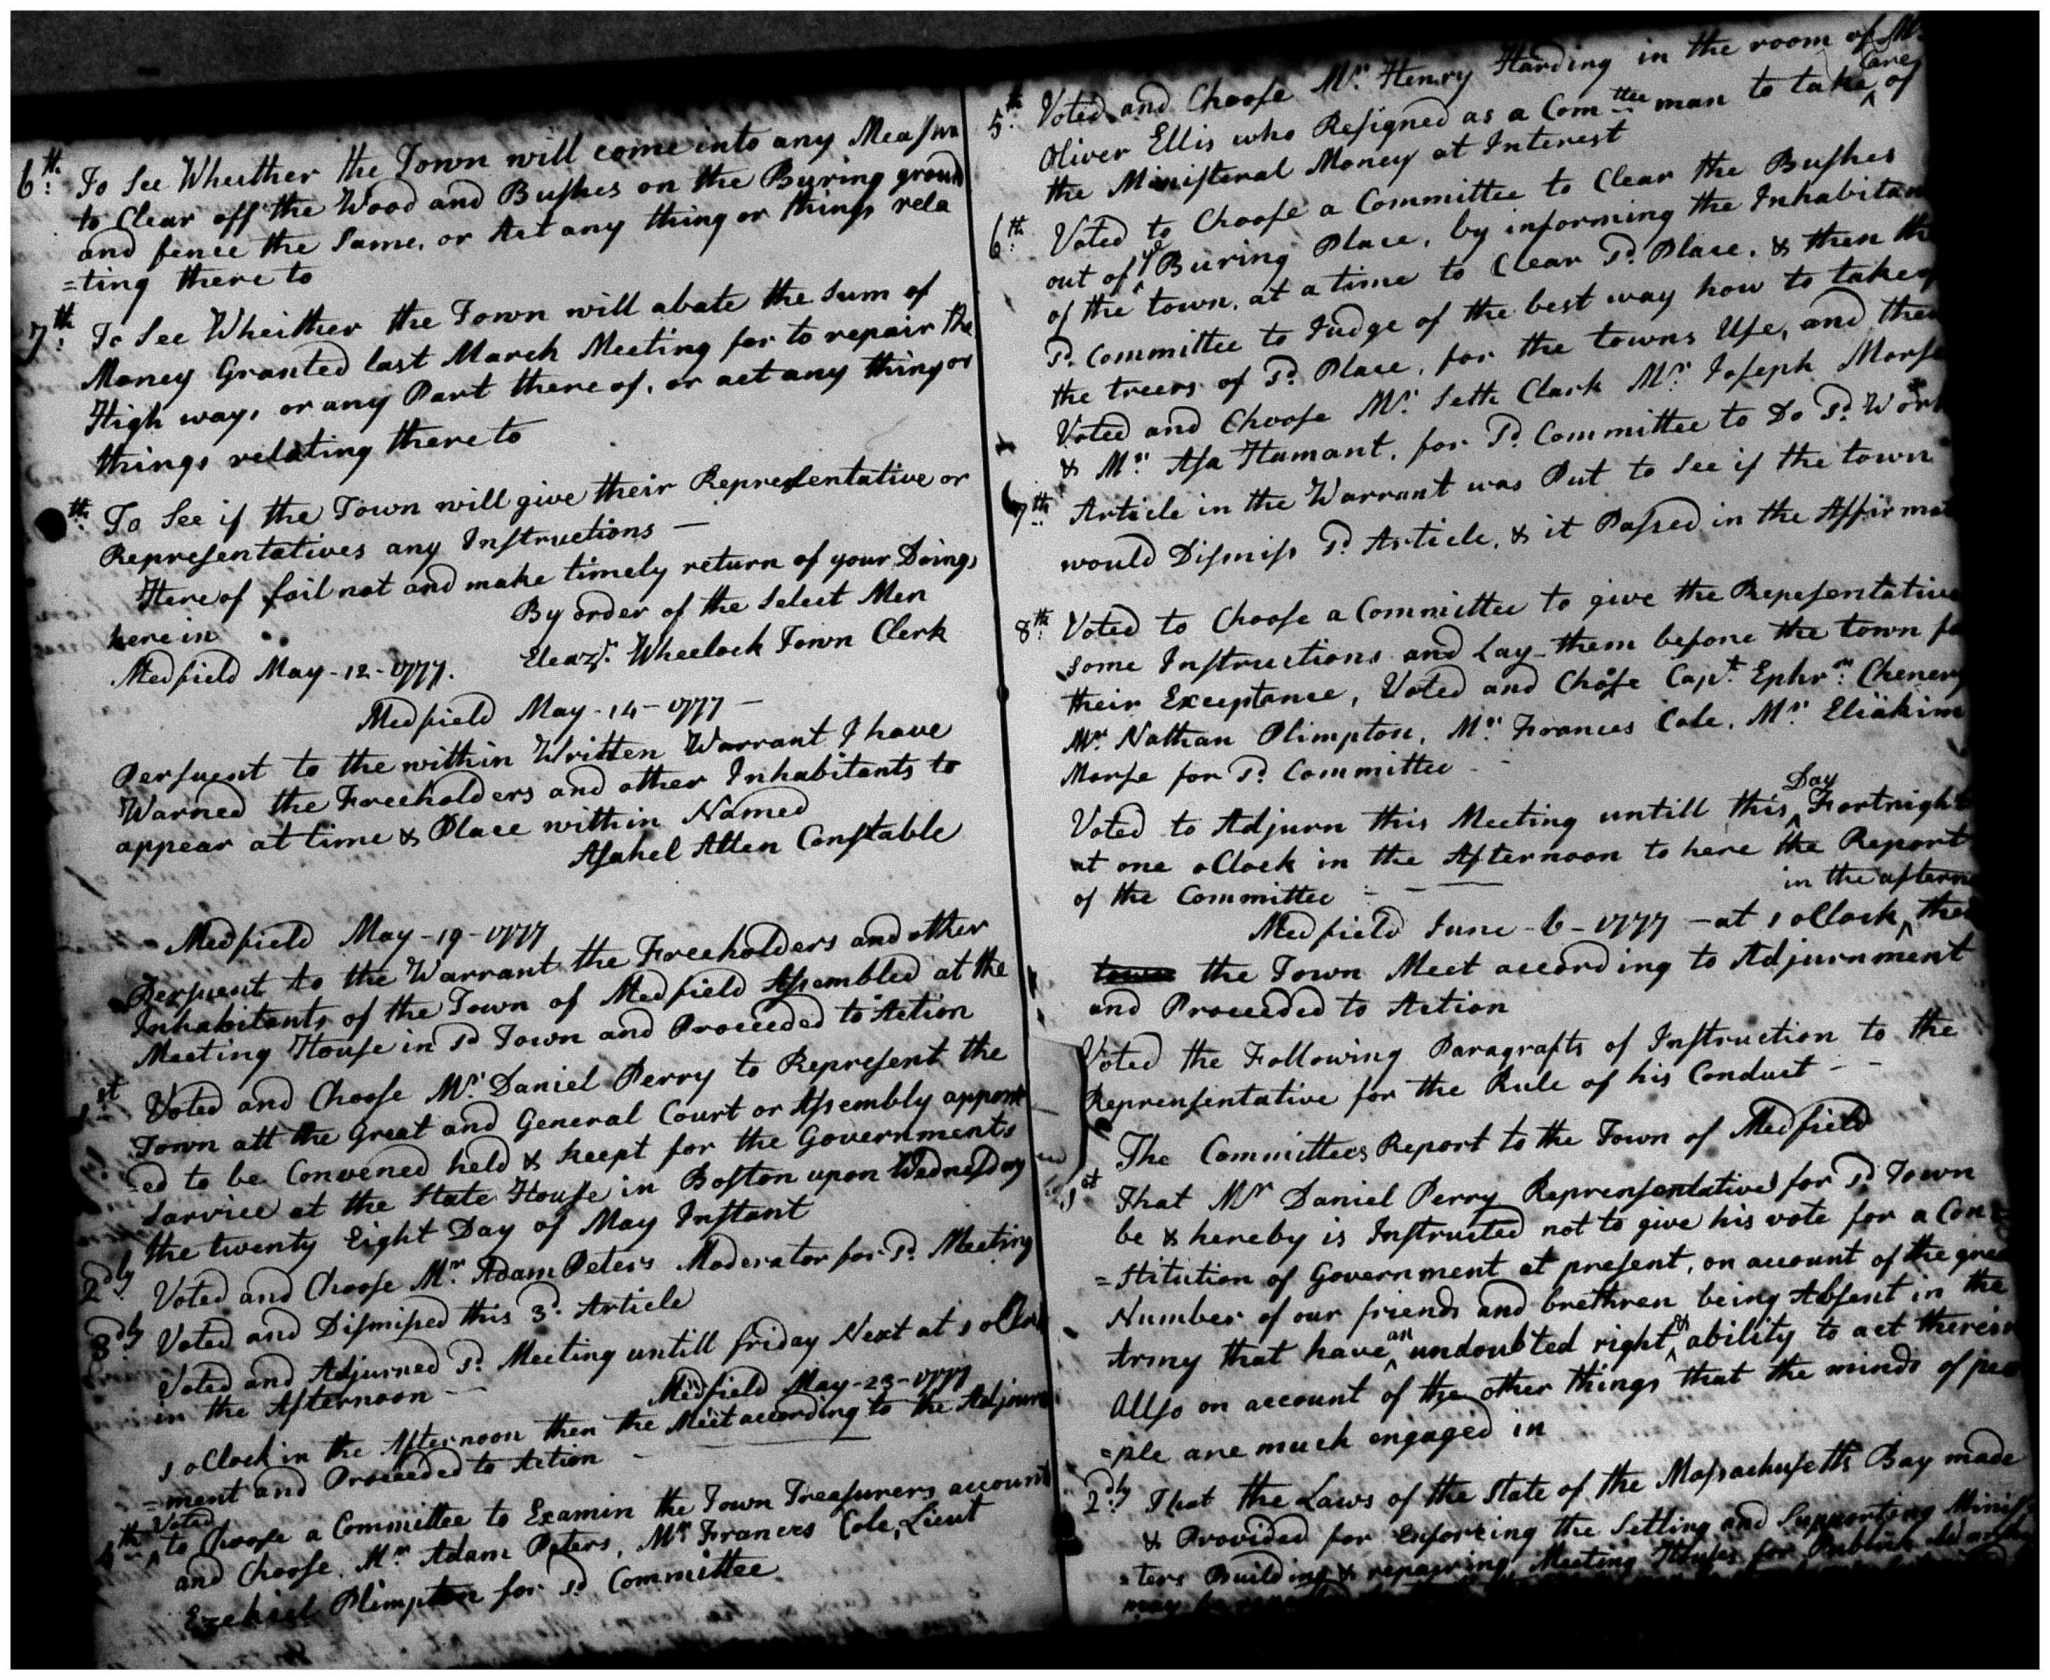 6th. To See Wheither the Town will come into any Measur
to Clear off the Wood and Bushes on the Buring ground
and fence the Same, or Act any thing or things rela
=ting there to
7th. To See Wheither the Town will abate the Sum of
Money Granted last March Meeting for to repair the
High ways or any Part there of, or act any thing or
things relating there to
th. To See if the Town will give their Representative or
Representatives any Instructions —
Here of fail not and make timely return of your Doings
herein By order of the Select Men
Medfield May-12-1777. Eleazr. Wheelock Town Clerk
Medfield May-14-1777 —
Persuent to the within Written Warrant I have
Warned the Freeholders and other Inhabitants to
appear at time & Place within Named
Asahel Allen Constable
Medfield May-19-1777
Persuent to the Warrant the Freeholders and other
Inhabitants of the Town of Medfield Assembled at the
Meeting House in Sd Town and Proceeded to Action
1st Voted and Choose Mr. Daniel Perry to Represent the
Town att the Great and General Court or Assembly appoint
=ed to be Convened held & keept for the Governments
Sarvice at the State House in Boston upon Wednesday
the twenty Eight Day of May Instant
2dly Voted and Choose Mr. Adam Peters Moderator for Sd. Meeting
3dly Voted and Dismissed this 3d. Article
Voted and Adjurned Sd. Meeting untill friday Next at 1 oClock
in the Afternoon —
Medfield May-23-1777
1 oClock in the Afternoon then the Meet according to the Adjourn
=ment and Proceeded to Action —
4th Voted to Choose a Committee to Examin the Town Treasurers account
and Choose, Mr. Adam Peters, Mr. Frances Cole, Lieut
Ezekiel Plimpton for Sd Committee
5th. Voted and Choose Mr. Henry Harding in the room of Mr.
Oliver Ellis who Resigned as a Comttee man to take Care of
the Ministeral Money at Interest
6th. Voted to Choose a Committee to Clear the Bushes
out of ye Buring Place, by informing the Inhabitan
of the town, at a time to Clear Sd. Place, & then the
Sd. Committee to Judge of the best way how to take
the treers of Sd. Place, for the towns Use, and then
Voted and Choose Mr. Seth Clark Mr. Joseph Morse
& Mr. Asa Hamant, for Sd. Committee to Do Sd. Work
7th. Article in the Warrant was Put to See if the town
would Dismiss Sd. Article, & it Passed in the Affirmat
8th. Voted to Choose a Committee to give the Repesentative
some Instructions and Lay them before the town for
their Exceptance, Voted and Chose Capt. Ephrm. Chenery
Mr. Nathan Plimpton, Mr. Frances Cole, Mr. Eliakim
Morse for Sd. Committee
Voted to Adjurn this Meeting untill this Day Fortnight
at one oClock in the Afternoon to here the Report
of the Committee —
Medfield June-6-1777 — at 1 oClock in the aftern then
town the Town Meet according to Adjurnment
and Proceeded to Action
Voted the Following Paragrafts of Instruction to the
Reprensentative for the Rule of his Conduct —
The Committees Report to the Town of Medfield
1st That Mr Daniel Perry Reprensentative for Sd Town
be & hereby is Instructed not to give his vote for a Con
=stitution of Government at present, on account of the great
Number of our friends and brethren being Absent in the
Army that have an undoubted right & ability to act therein
Allso on account of the other things that the minds of peo
=ple are much engaged in
2dly That the Laws of the State of the Massachusetts Bay made
& Provided for Enforcing the Setling and Supporting Minis
=ters Building & repairing Meeting Houses for Publick
may be